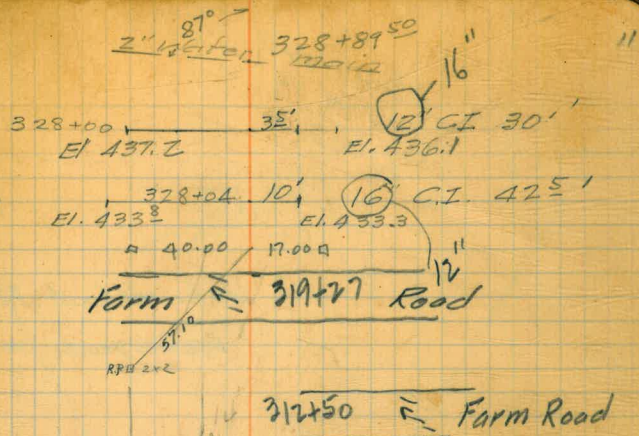 87°
2" water main 328+89 50
16"
11
328+00 35' 12" C.I. 30'
El 437.2 El. 436.1
328+04 10' 16" C.I. 42 5'
El. 433 8 El. 433.3
40.00 17.00 12"
Farm 319+27 Road
57.10
R.P. 2x2
312+50 Farm Road